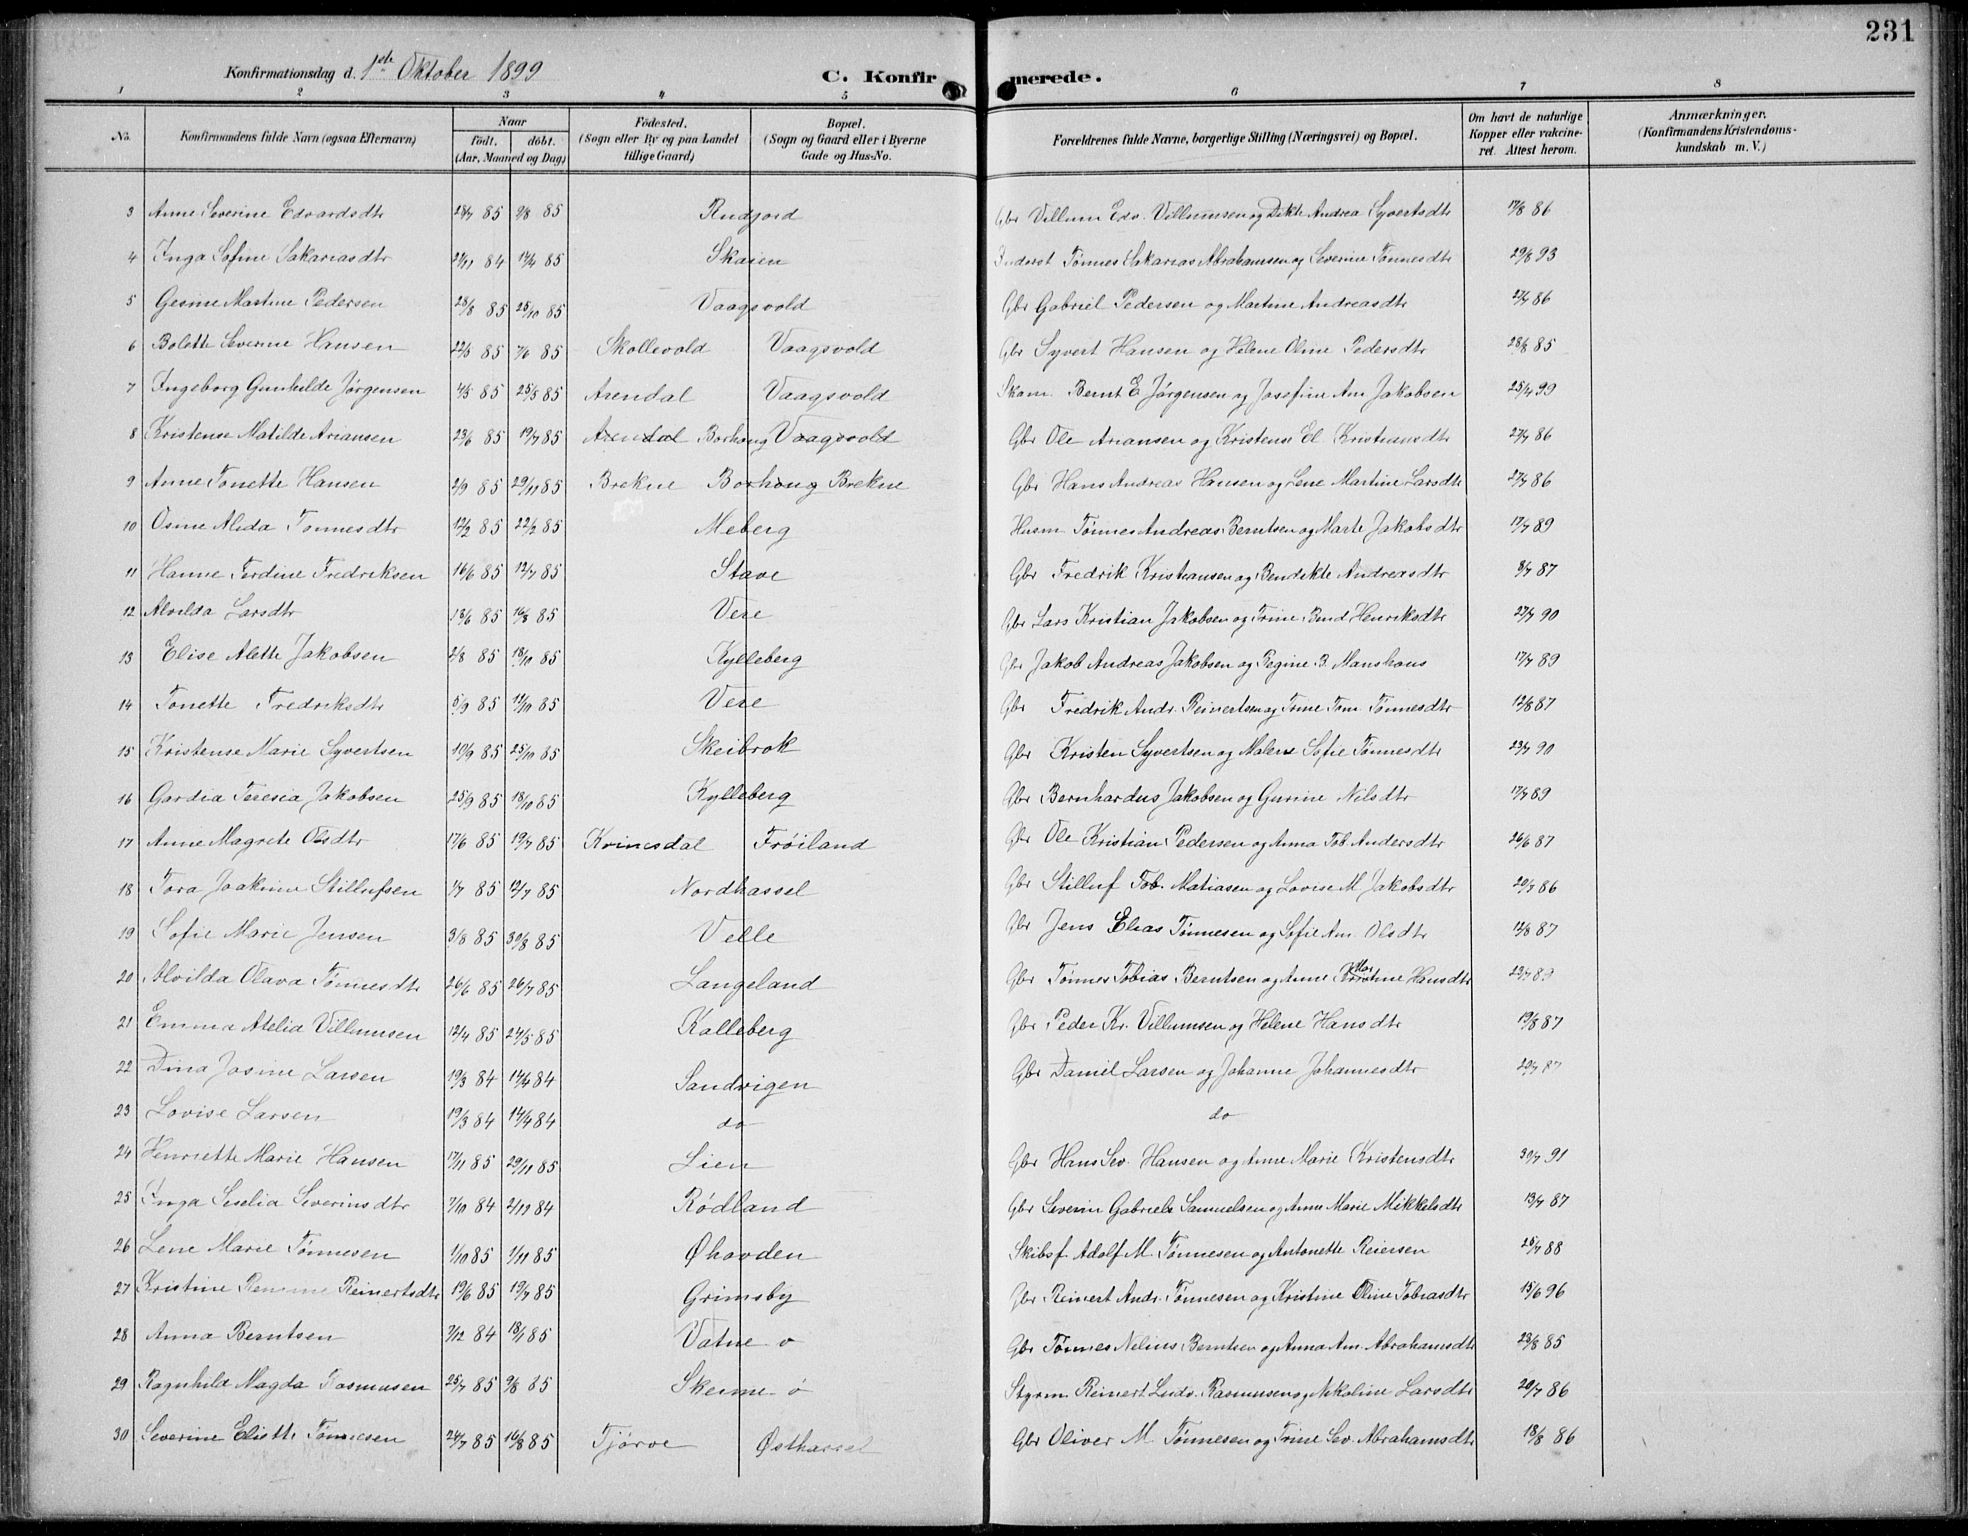 231
Konfirmationsdag d. 1ste Oktober 1899 C. Konfirmerede.
1 2 3 4 5 6 7 8
No. Konfirmandens fulde Navn (ogsaa Efternavn) Naar født. døbt. (Aar, Maaned og Dag) Fødested. (Sogn eller By og paa Landet tillige Gaard) Bopæl. (Sogn og Gaard eller i Byerne Gade og Hus-No. Forældrenes fulde Navne, borgerlige Stilling (Næringsvei) og Bopæl. Om havt de naturlige Kopper eller vakcineret. Attest herom. Anmærkninger. (Konfirmandens Kristendomskundskab m. V.)
3 Anne Severine Edvardsdtr 28/7 85 9/8 85 Rudjord Gbr Villum Edv. Villumsen og Dikte Andrea Syvertsdtr 17/8 86
4 Inga Sofine Sakariasdtr 21/11 84 17/4 85 Skaien Inderst Tønnes Sakarias Abrahamsen og Severine Tønnesdtr 29/8 93
5 Gesine Martine Pedersen 28/8 85 25/10 85 Vaagsvold Gbr Gabriel Pedersen og Martine Andreasdtr 27/7 86
6 Bolette Severine Hansen 22/5 85 7/6 85 Skollevold Vaagsvold Gbr Syvert Hansen og Helene Oline Pedersdtr 28/8 85
7 Ingeborg Gunhilde Jørgensen 4/5 85 25/5 85 Arendal Vaagsvold Skom. Bernt E Jørgensen og Josefine Am Jakobsen 25/4 99
8 Kristense Matilde Ariansen 23/6 85 19/7 85 Arendal Borhaug Vaagsvold Gbr Ole Ariansen og Kristense El. Kristiansdtr 27/7 86
9 Anne Tonette Hansen 2/9 85 29/11 85 Brekne Borhaug Brekne Gbr Hans Andreas Hansen og Lene Martine Larsdtr 27/7 86
10 Osine Alida Tønnesdtr 12/2 85 22/2 85 Meberg Husm. Tønnes Andreas Berntsen og Marte Jakobsdtr 17/7 89
11 Hanne Ferdine Fredriksen 16/6 85 12/7 85 Stave Gbr Fredrik Kristiansen og Bendikte Andreasdtr 8/7 87
12 Alvilda Larsdtr 13/6 85 16/8 85 Vere Gbr Lars Kristian Jakobsen og Trine Bend Henriksdtr 27/7 90
13 Elise Alette Jakobsen 2/8 85 18/10 85 Kylleberg Gbr Jakob Andreas Jakobsen og Regine B. Manshaus 17/7 89
14 Tonette Fredriksdtr 5/9 85 11/10 85 Vere Gbr Fredrik Andr. Reinertsen og Trine Tom. Tønnesdtr 12/8 87
15 Kristense Marie Syvertsen 10/9 85 25/10 85 Skeibrok Gbr Kristen Syvertsen og Malene Sofie Tønnesdtr 23/7 90
16 Gardia Teresia Jakobsen 25/9 85 18/10 85 Kylleberg Gbr Bernhardus Jakobsen og Gurine Nilsdtr 17/7 89
17 Anne Magrete Olsdtr 17/6 85 19/7 85 Kvinesdal Frøiland Gbr Ole Kristian Pedersen og Anna Tob. Andersdtr 26/6 87
18 Tora Joakime Stillufsen 1/7 85 12/7 85 Nordhassel Gbr Stilluf Tob. Matiasen og Lovise M Jakobsdtr 20/7 86
19 Sofie Marie Jensen 3/8 85 30/8 85 Velle Gbr Jens Elias Tønnesen og Sofie Am. Olsdtr 12/8 87
20 Alvilda Olava Tønnesdtr 26/6 85 26/7 85 Langeland Gbr Tønnes Tobias Berntsen og Anne Martine Hansdtr 23/7 89
21 Emma Atelia Villumsen 12/4 85 24/5 85 Kalleberg Gbr Peder Kr. Villumsen og Helene Hansdtr 19/8 87
22 Dina Josine Larsen 19/3 84 14/4 84 Sandvigen Gbr Daniel Larsen og Johanne Johannesdtr 20/7 87
23 Lovise Larsen 19/3 84 14/4 84 do do
24 Henriette Marie Hansen 17/11 85 29/11 85 Lien Gbr Hans Sev. Hansen og Anne Marie Kristensdtr 30/7 91
25 Inga Seselia Severinsdtr 7/10 84 2/12 84 Rødland Gbr Severin Gabriels Samuelsen og Anne Marie Mikkelsdtr 13/7 87
26 Lene Marie Tønnesen 1/10 85 1/11 85 Øhovden Skibsf. Adolf M. Tønnesen og Antonette Reiersen 25/7 88
27 Kristine Reinertsdtr 19/6 85 19/7 85 Grimsby Gbr Reinert Andr. Tønnesen og Kristine Oline Tobiasdtr 15/6 96
28 Anna Berntsen 7/12 84 18/1 85 Vatne ø Gbr Tønnes Nelius Berntsen og Anna Am. Abrahamsdtr 28/8 85
29 Ragnhild Magda Rasmusen 25/7 85 9/8 85 Skeime ø Styrm. Reinert Ludv. Rasmusen og Nikoline Larsdtr 20/7 86
30 Severine Eliette Tønnesen 24/7 85 16/8 85 Tjørve Østhassel Gbr Oliver M Tønnesen og Trine Sev. Abrahamsdtr 18/8 86